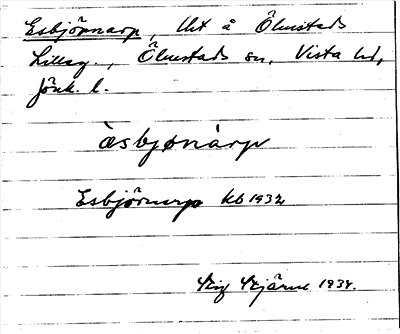 Esbjörnarp, Uht å Ölmstads
Lilleg., Ölmstads sn, Vista hd,
Jönk. l.
àsbjønàrp
Esbjörnarp kb 1932
Stig Stjärne 1934.